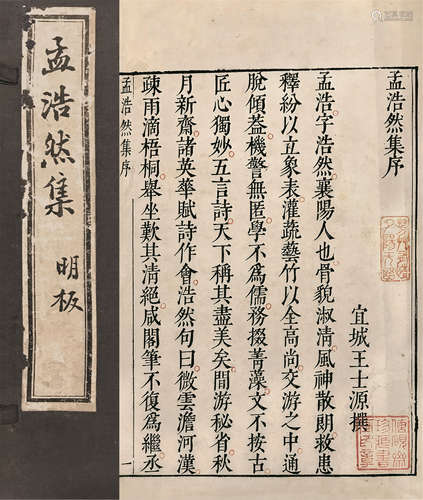 孟浩然集序
宜城王士源撰
孟浩字浩然襄陽人也骨貌淑清風神散朗救患
釋紛以立象表灌蔬藝竹以全高尚交游之中通
脫傾葢機警無匿學不爲儒務掇菁藻文不按古
匠心獨妙五言詩天下稱其盡美矣閒游秘省秋
月新霽諸英華賦詩作會浩然句曰微雲澹河漢
疎雨滴梧桐舉坐歎其清絕咸閣筆不復爲繼丞
孟浩然集序
一
孟浩然集
明板